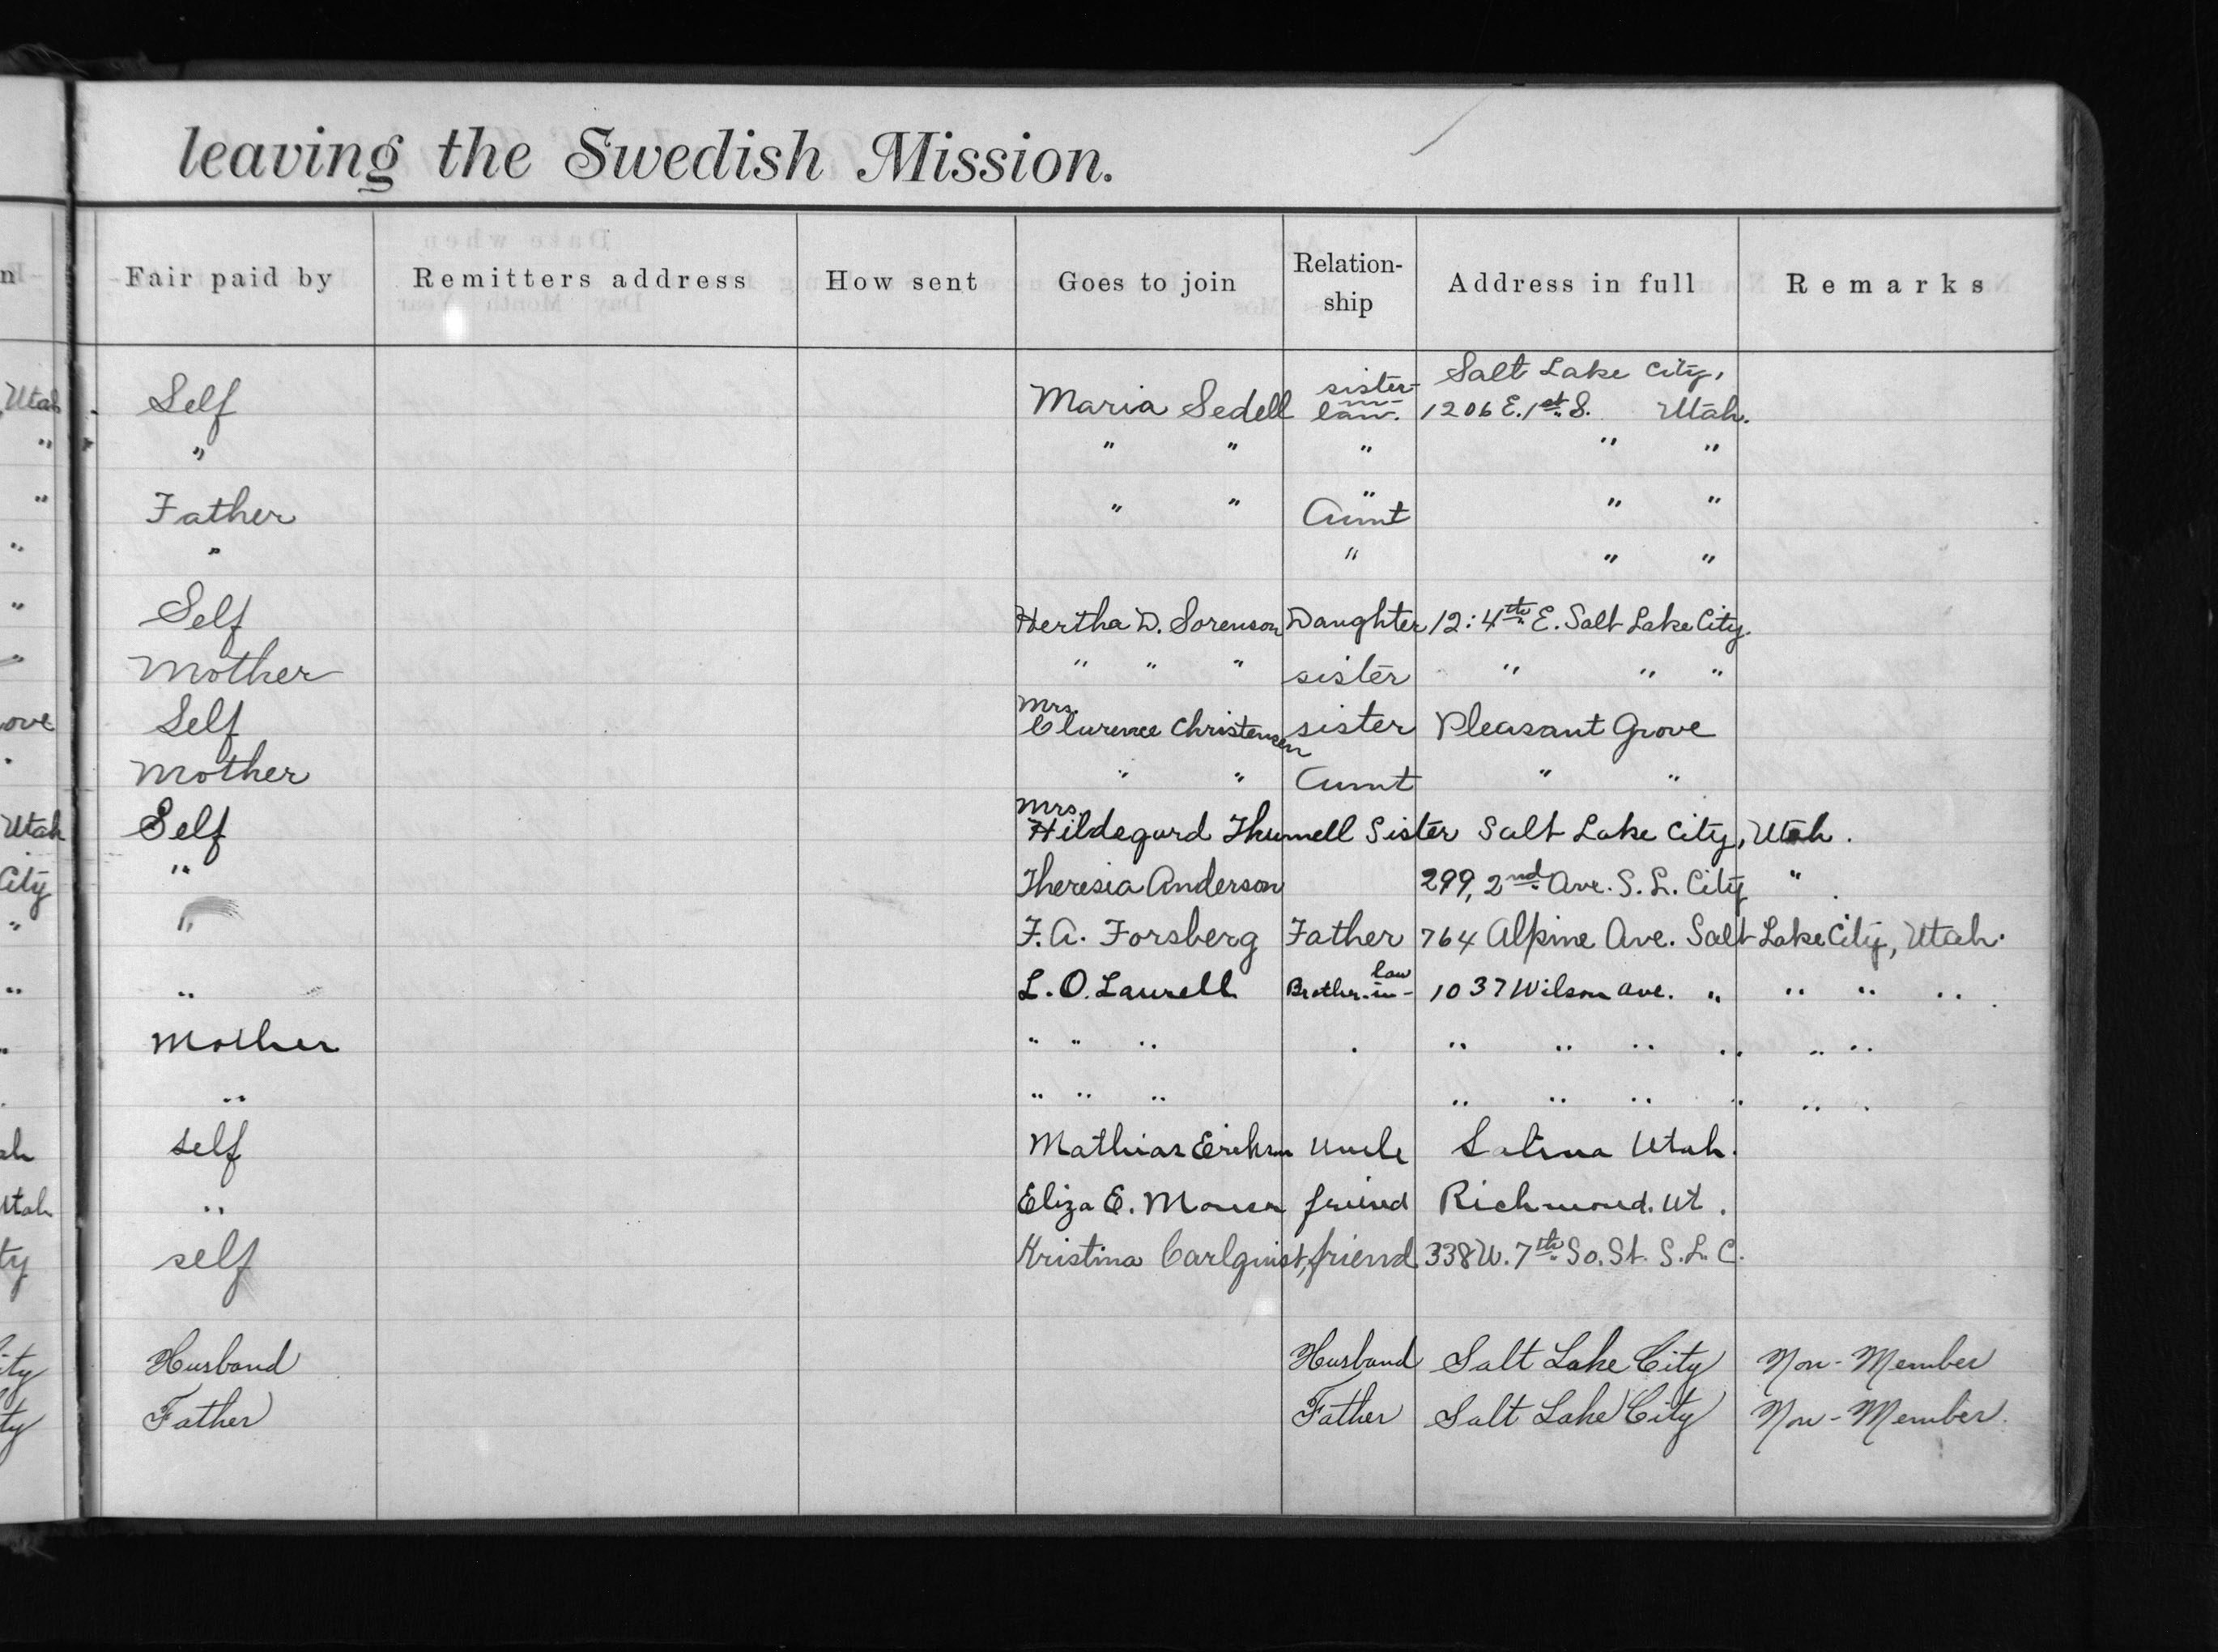 leaving the Swedish Mission.
Fair paid by Remitters address How sent Goes to join Relation-ship Address in full Remarks
Salt Lake City,
Utah . Self Maria Sedell sister-in-law. 1206 E. 1st S. Utah.
" " " " " " "
" Father " " " Aunt " "
" " " " "
" Self Hertha D. Sorenson Daughter 12: 4th E. Salt Lake City.
" Mother " " " sister " " "
ove Self Mrs. Clarence Christensen sister Pleasant Grove
" Mother " " Aunt " "
Utah Self Mrs. Hildegard Thunell Sister Salt Lake City, Utah.
City " Theresia Anderson 299, 2nd Ave. S. L. City "
" " F. A. Forsberg Father 764 Alpine Ave. Salt Lake City, Utah.
" " L. O. Laurell Brother-in-law 1037 Wilson ave. " " " "
" Mother " " " . " " " " " "
. " " " " " " " " " "
ah self Mathias Erikson Uncle Salina Utah.
Utah " Eliza E. friend Richmond. Ut.
ty self Kristina Carlquist, friend 338 W. 7th So. St. S. L. C.
ity Husband Husband Salt Lake City Non-Member
ty Father Father Salt Lake City Non-Member.